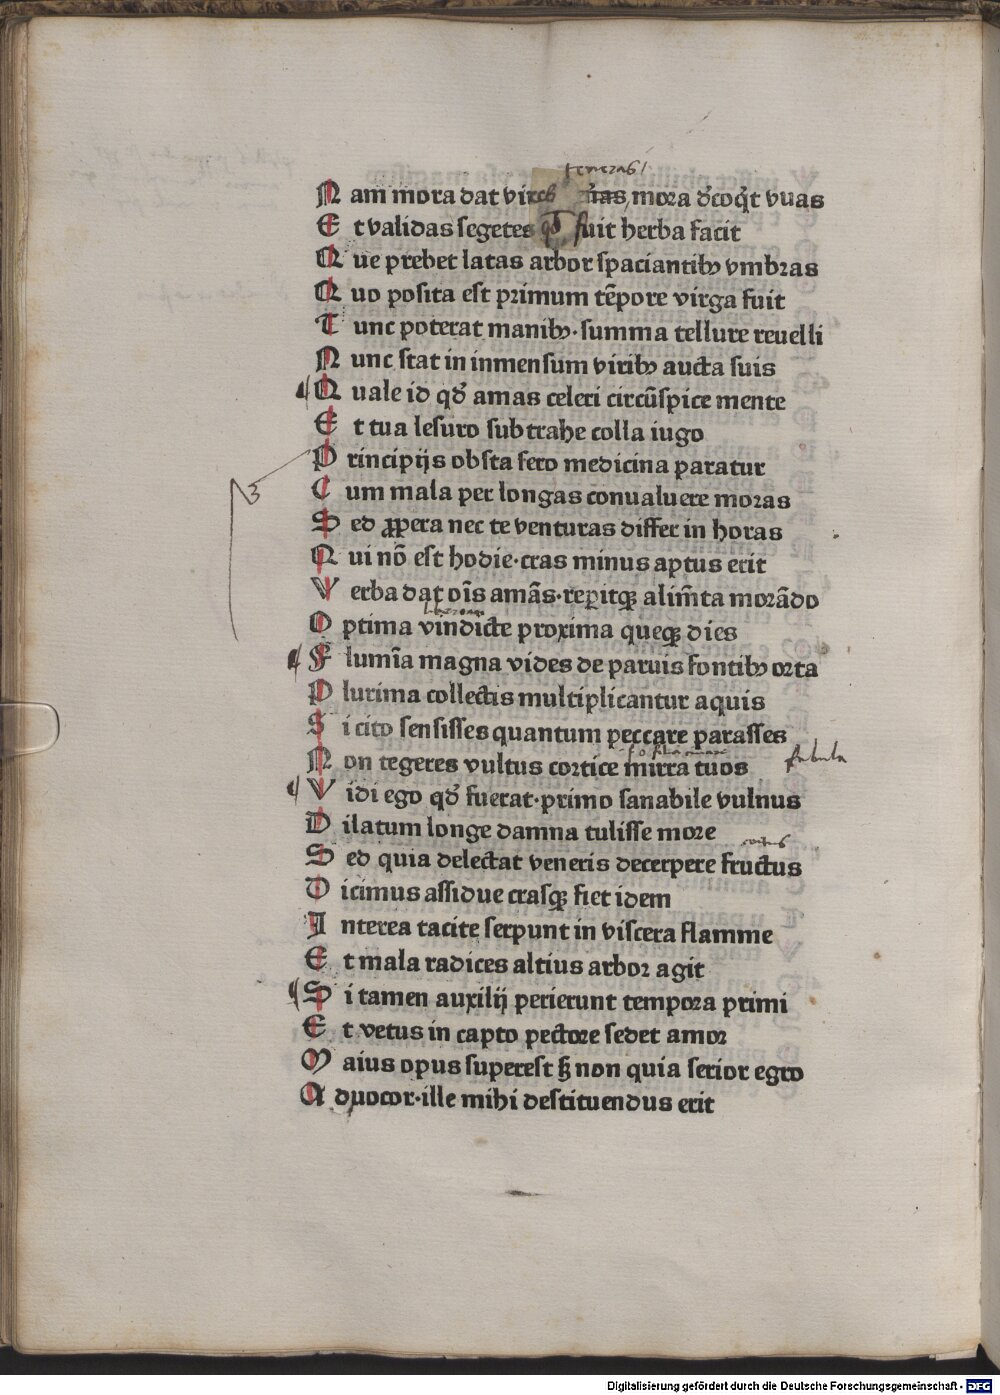 teneras
Nam mora dat vires t̄n̄as, mora d̄coq̄t vuas
Et validas segetes qd̄ fuit herba facit
Que prebet latas arbor spaciantibꝫ vmbras
Quo posita est primum tēpore virga fuit
Tunc poterat manibꝫ·summa tellure reuelli
Nunc stat in inmensum viribꝫ aucta suis
Quale id qd̄ amas celeri circūspice mente
Et tua lesuro subtrahe colla iugo
Principijs obsta sero medicina paratur
Cum mala per longas conualuere moras
Sed ꝓpera nec te venturas differ in horas
Qui nō est hodie·cras minus aptus erit
Verba dat oīs amās·reꝑitqꝫ alim̄ta morādo
Optima vindicte proxima queqꝫ dies
Flumīa magna vides de paruis fontibꝫ orta
Plurima collectis multiplicantur aquis
Si cito sensisses quantum peccare parasses
Non tegeres vultus cortice mirra tuos fabula
Vidi ego qd̄ fuerat·primo sanabile vulnus
Dilatum longe damna tulisse more
Sed quia delectat veneris decerpere fructus
Dicimus assidue crasqꝫ fiet idem
Interea tacite serpunt in viscera flamme
Et mala radices altius arbor agit
Si tamen auxilij perierunt tempora primi
Et vetus in capto pectore sedet amor
Maius opus superest sꝫ non quia serior egro
Aduocor·ille mihi destituendus erit
Digitalisierung gefördert durch die Deutsche Forschungsgemeinschaft - DFG